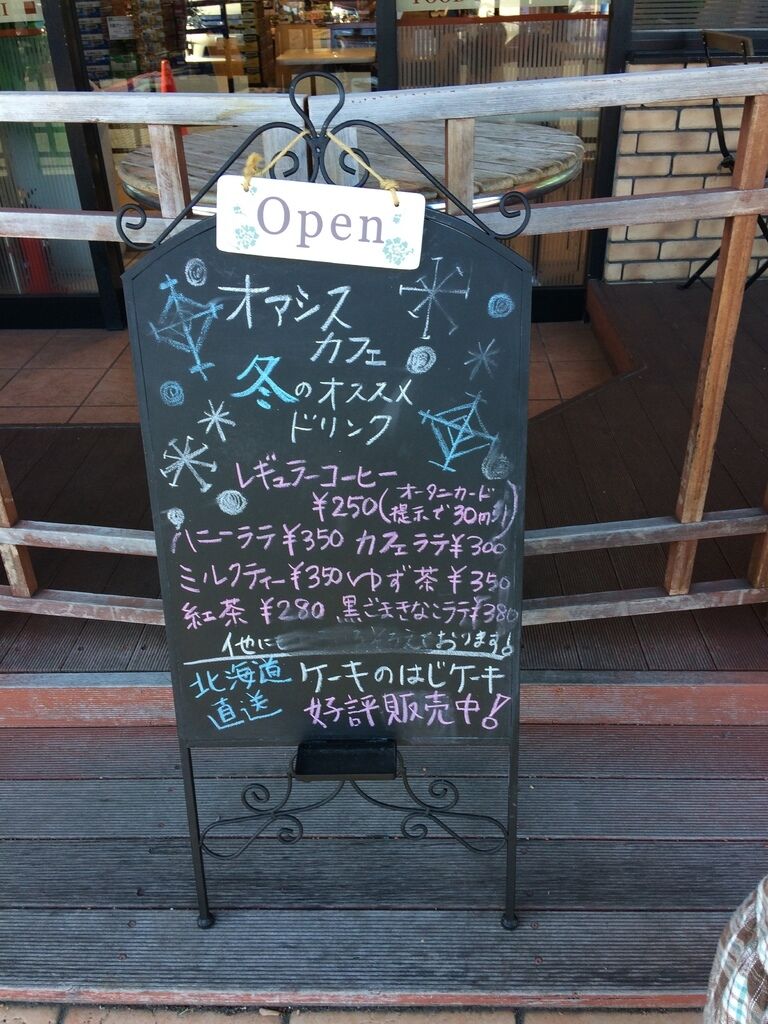 Open
オアシス
カフェ
冬のオススメ
ドリンク
レギュラーコーヒー
¥250(オータニカード
提示で30円引)
ハニーラテ¥350 カフェラテ¥300
ミルクティー¥350 ゆず茶¥350
紅茶¥280 黒ごまきなこラテ¥380
他にも えております!
北海道 ケーキのはじケーキ
直送 好評販売中!